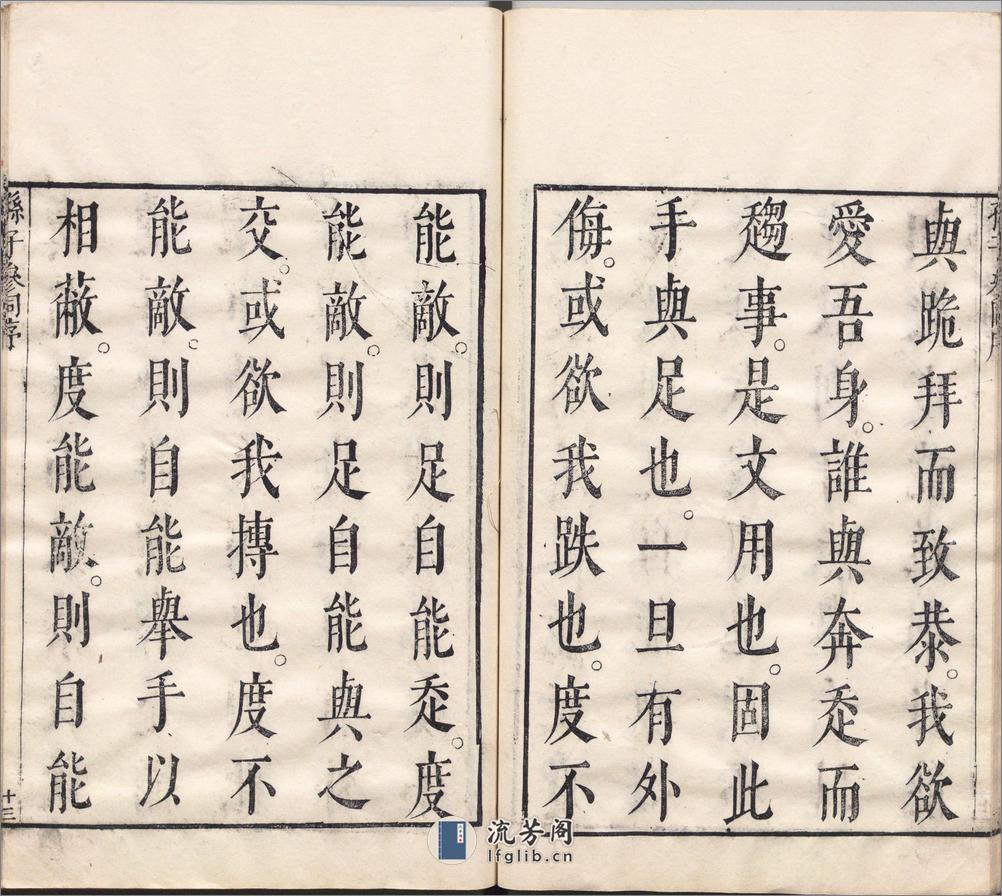 與跪拜而致恭。我欲
愛吾身。誰與奔忝而
趨事。是文用也。固此
手與足也。一旦有外
侮。或欲我跌也。度不
能敵。則足自能忝。度
能敵。則足自能與之
交。或欲我摶也。度不
能敵。則自能舉手以
相蔽。度能敵。則自能
孫子參同序
十三
流芳阁
lfglib.cn